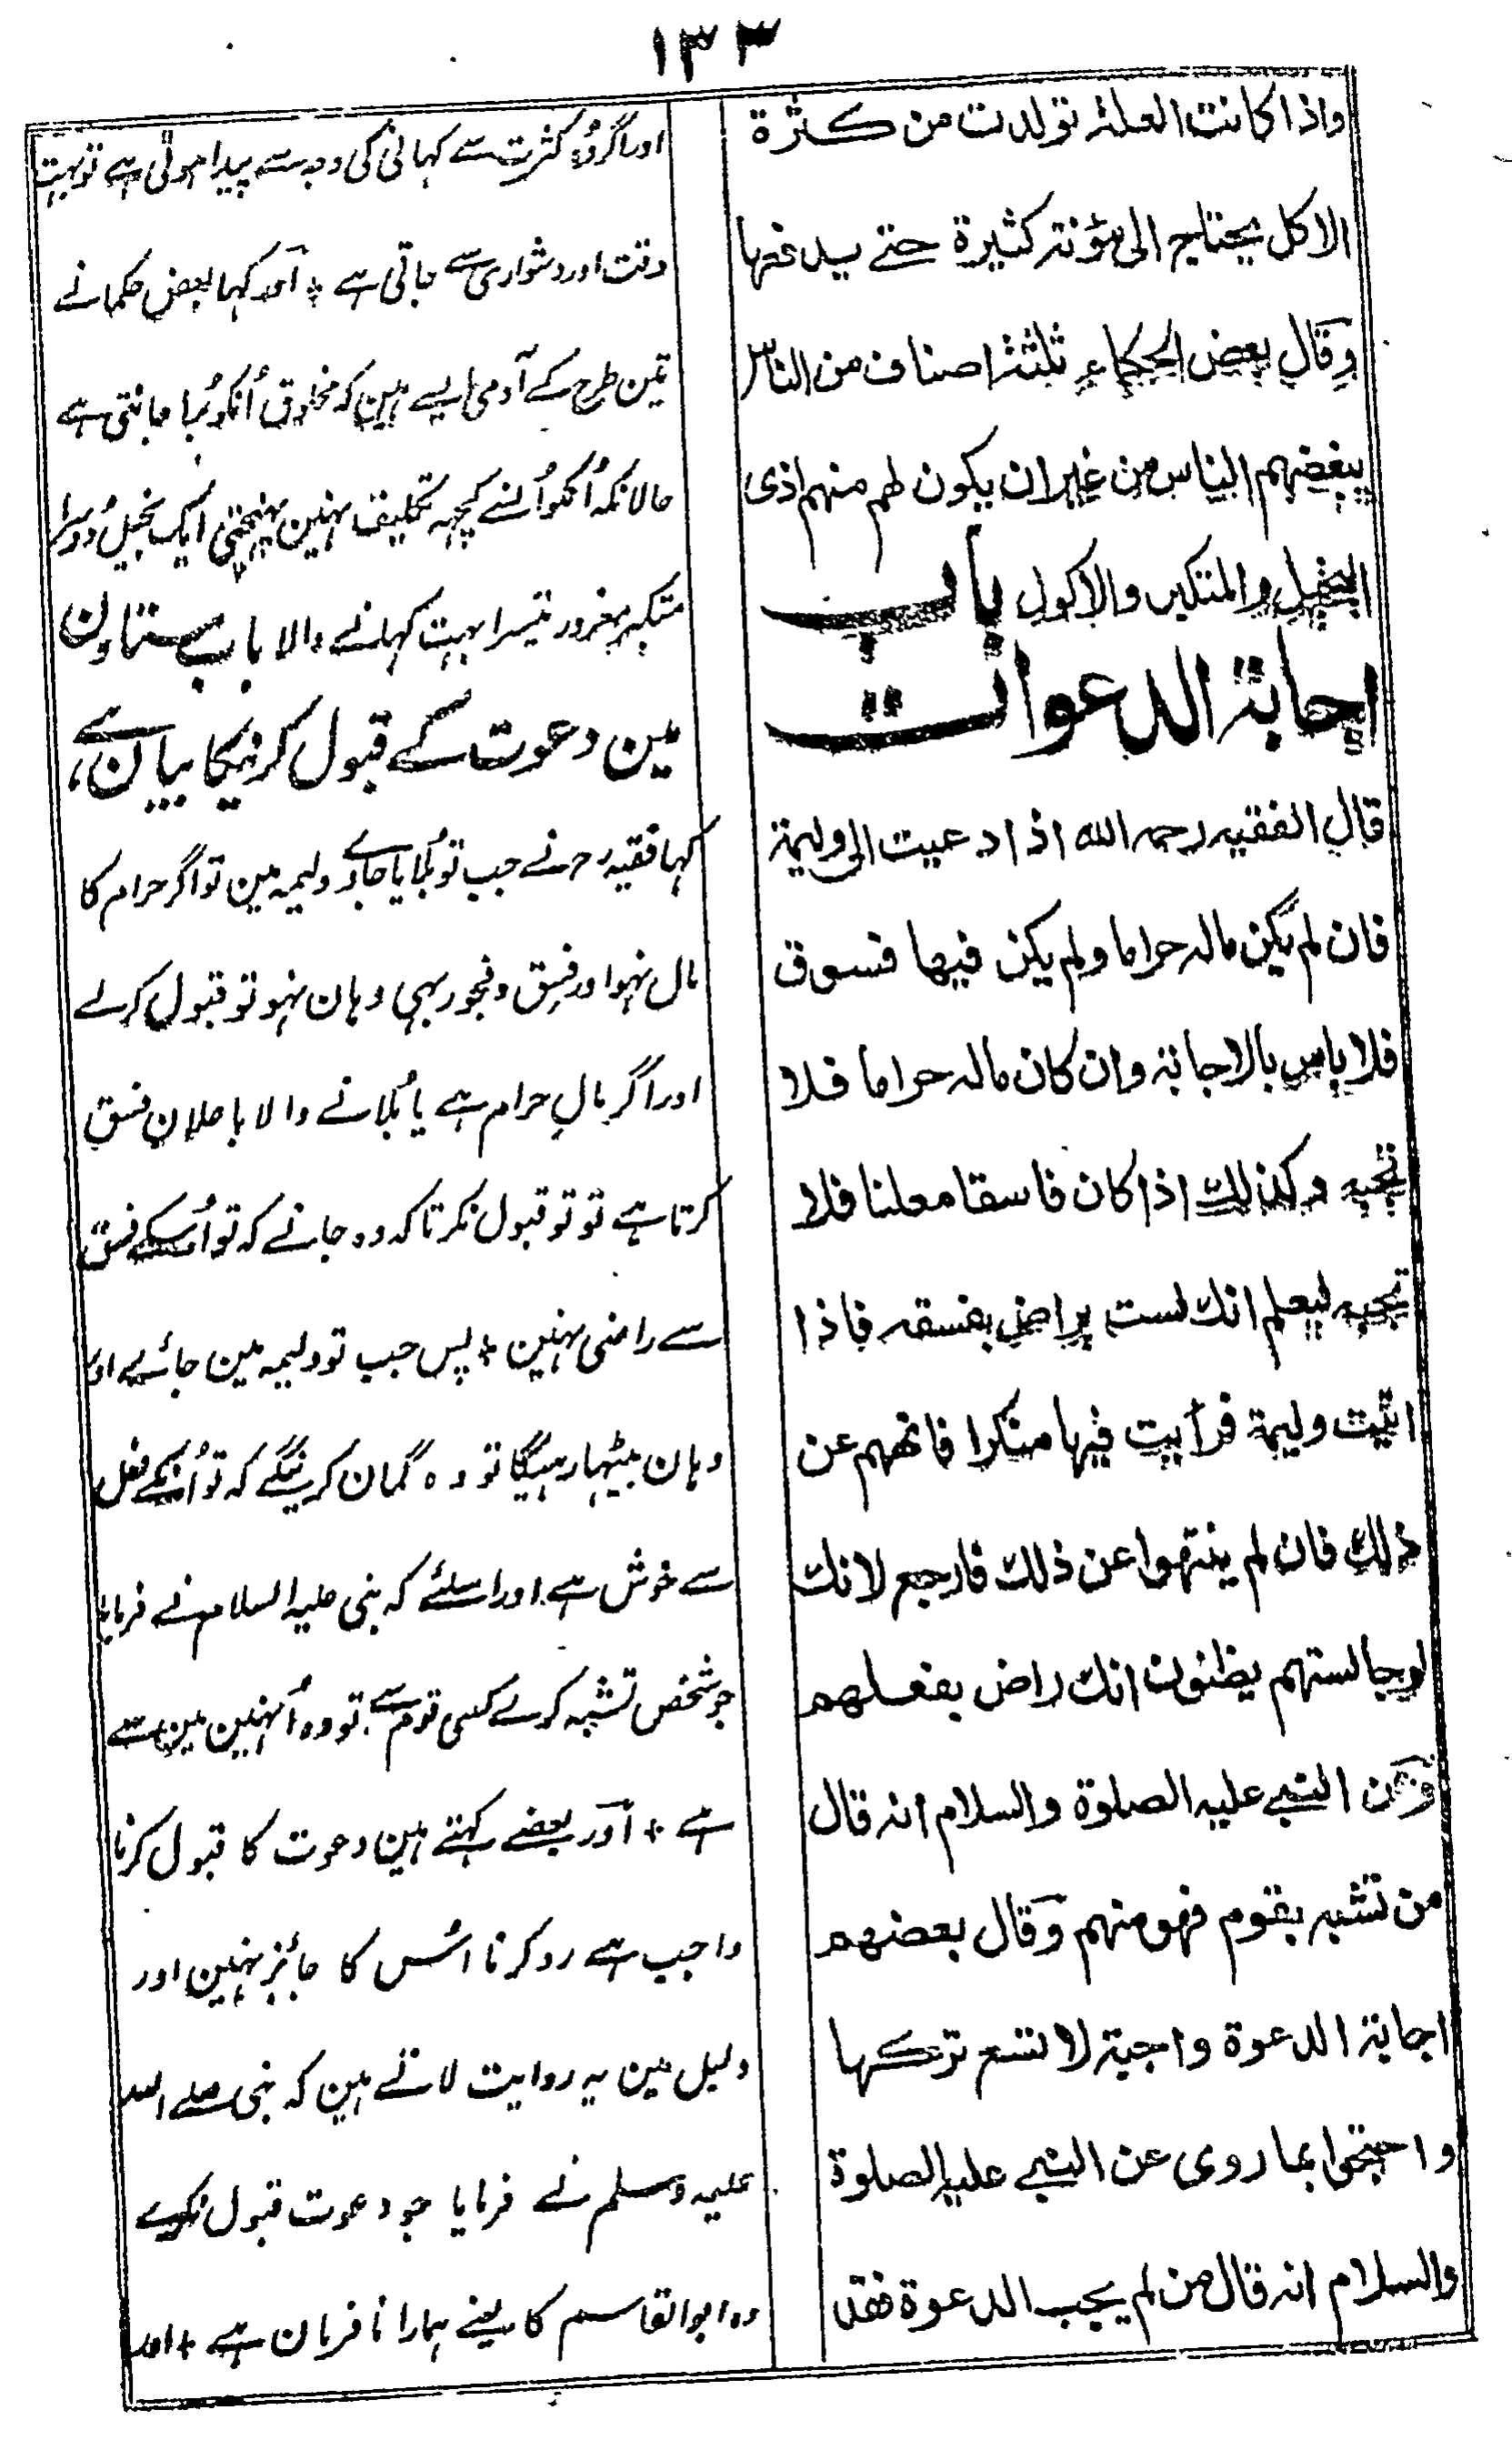 ١٣٣
واذا كانت العلة تولدت من كثرة
الاكل يحتاج الى مؤنة كثيرة حتے يدفعها
وقال بعض الحكماء ثلثة اصناف من الناس
يبغضهم الناس من غير ان يكون لهم منهم اذى
البخيل والمتكبر والاكول باب
اجابة الدعوات
قال الفقيه رحمه الله اذا دعيت الى وليمة
فان لم يكن ماله حراما ولم يكن فيها فسوق
فلا باس بالاجابة وان كان ماله حراما فلا
تجبه وكذلك اذا كان فاسقا معلنا فلا
تجبه ليعلم انك لست براض بفسقه فاذا
اتيت وليمة فرأيت فيها منكرا فانههم عن
ذلك فان لم ينتهوا عن ذلك فارجع لانك
لو جالستهم يظنون انك راض بفعلهم
وعن النبے عليه الصلوة والسلام انه قال
من تشبه بقوم فهو منهم وقال بعضهم
اجابة الدعوة واجبة لا تسع تركها
واحتجوا بما روى عن النبے عليه الصلوة
والسلام انه قال من لم يجب الدعوة فقد
اور اگر وُہ کثرت سے کہانی کی وجہ سے پیدا ہوئی ہے تو بہت
دقت اور دشواری سے جاتی ہے + اور کہا بعض حکما نے
تین طرح کے آدمی ایسے ہین کہ مخلوق اُنکو بُرا جانتی ہے
حالانکہ اُنکو اُنسے کچہہ تکلیف نہین پہنچتی ایک بخیل دُوسرا
متکبر مغرور تیسرا بہت کہانے والا باب ستاون
مین دعوت کے قبول کرنیکا بیان ہے،
کہا فقیہ رح نے جب تو بُلایا جاوے ولیمہ مین تو اگر حرام کا
مال نہو اور فسق و فجور بہی وہان نہو تو قبول کرلے
اور اگر مال حرام ہے یا بُلانے والا باعلان فسق
کرتا ہے تو تو قبول نکر تاکہ وہ جانے کہ تو اُسکے فسق
سے راضی نہین + پس جب تو ولیمہ مین جائے اور
وہان بیٹہا رہیگا تو وہ گمان کرینگے کہ تو اُنکے فعل
سے خوش ہے اور اسلئے کہ نبی علیہ السلام نے فرمایا
جو شخص تشبہ کرے کسی قوم سے تو وہ اُنہین مین سے
ہے + اور بعضے کہتے ہین دعوت کا قبول کرنا
واجب ہے رد کرنا اُس کا جائز نہین اور
دلیل مین یہ روایت لاتے ہین کہ نبی صلے اللہ
علیہ وسلم نے فرمایا جو دعوت قبول نکرے
وہ ابوالقاسم کا یعنے ہمارا نا فرمان ہے + اور